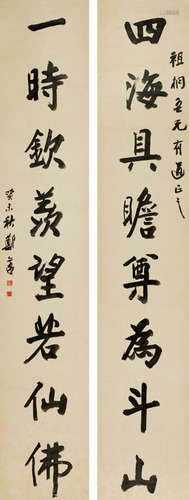 四海具瞻尊為斗山
祖桐吾兄有道正之
一時欽羨望若仙佛
癸未秋鄭